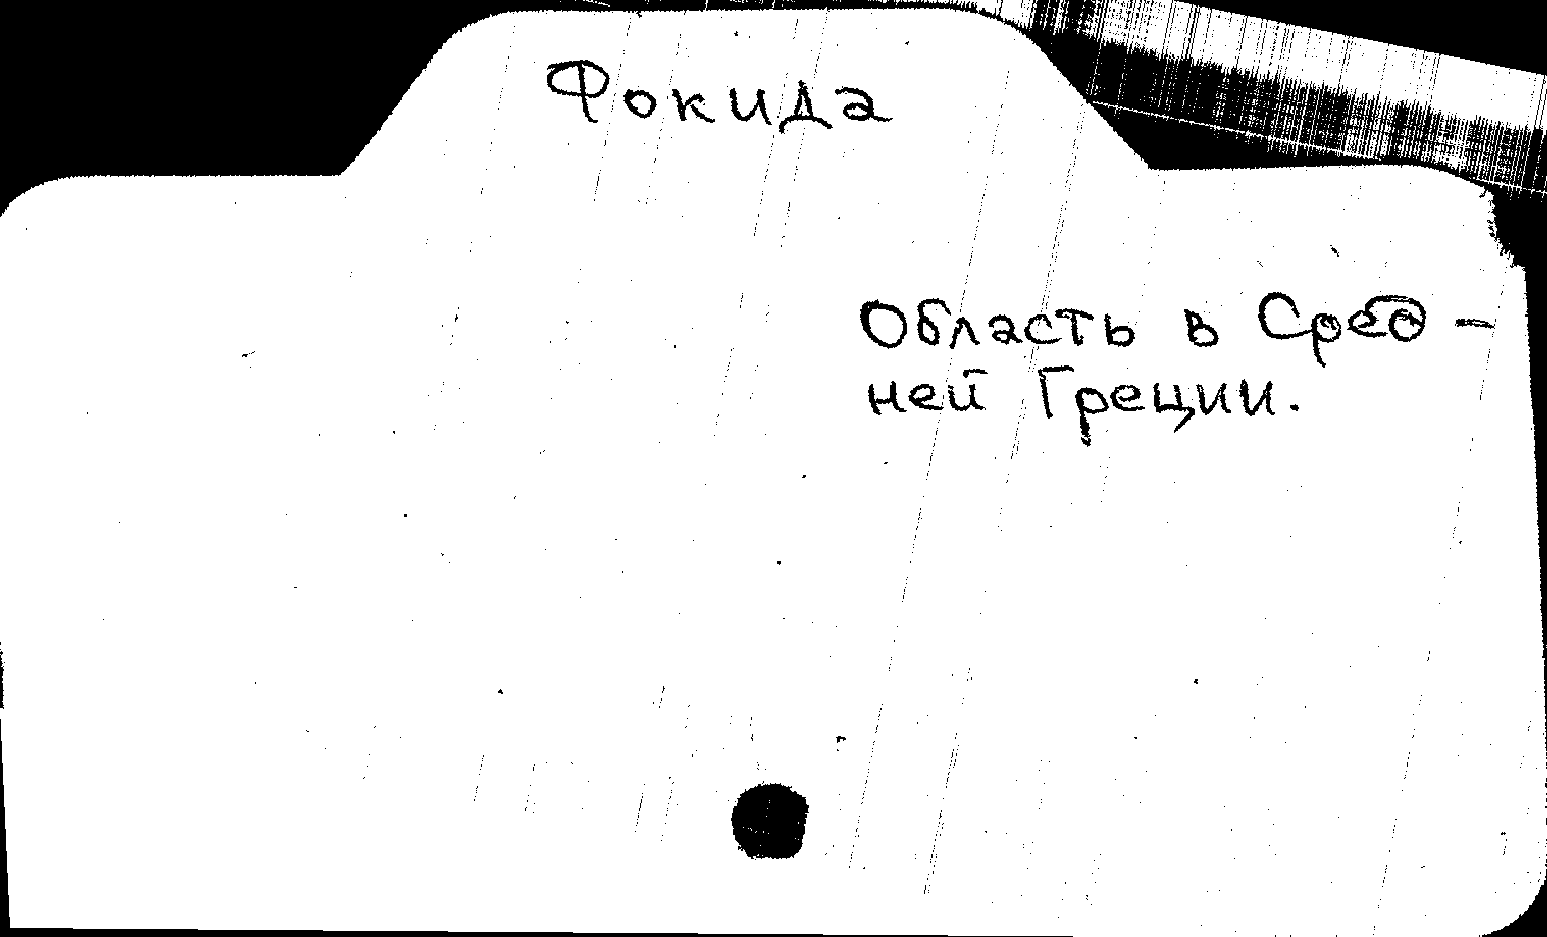 Фокида
Область в Сред-
ней Греции.